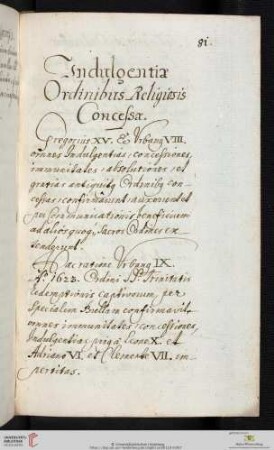 81.
Indulgentiæ
Ordinibus Religiosis
Concessæ.
Gregorius XV. & Urbanus VIII.
omnes Indulgentias, concessiones,
immunitates, absolutiones, et
gratias antiquis Ordinibus con-
cessas, confirmavit, auxerunt, et
per communicationis beneficium
ad alios quoque Sacros Ordines ex-
tenderunt.
Hac ratione Urbanus IX.
A. 1623. Ordini SS. Trinitatis
redemptionis captivorum, per
Specialem Bullam confirmavit
omnes immunitates, concessiones,
Indulgentias, prius a Leone X. et
Adriano VI. et Clemente VII. im-
pertitas.